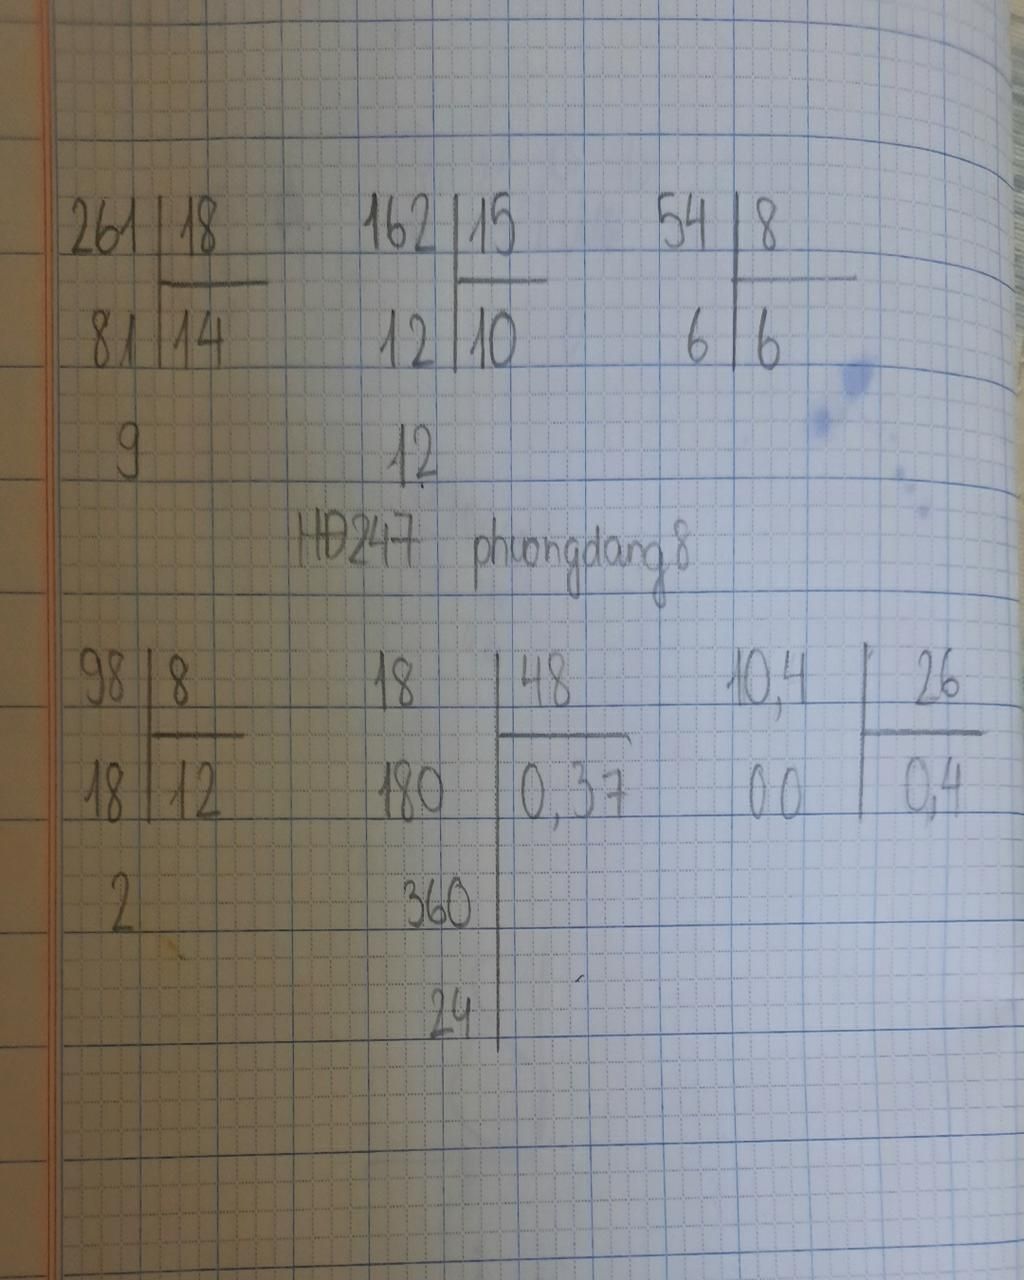 261 18 162 15 54 8
81 14 12 10 6 6
9 12
HĐ247 phuongdang8
98 8 18 48 10,4 26
18 12 180 0,37 00 0,4
2 360
24